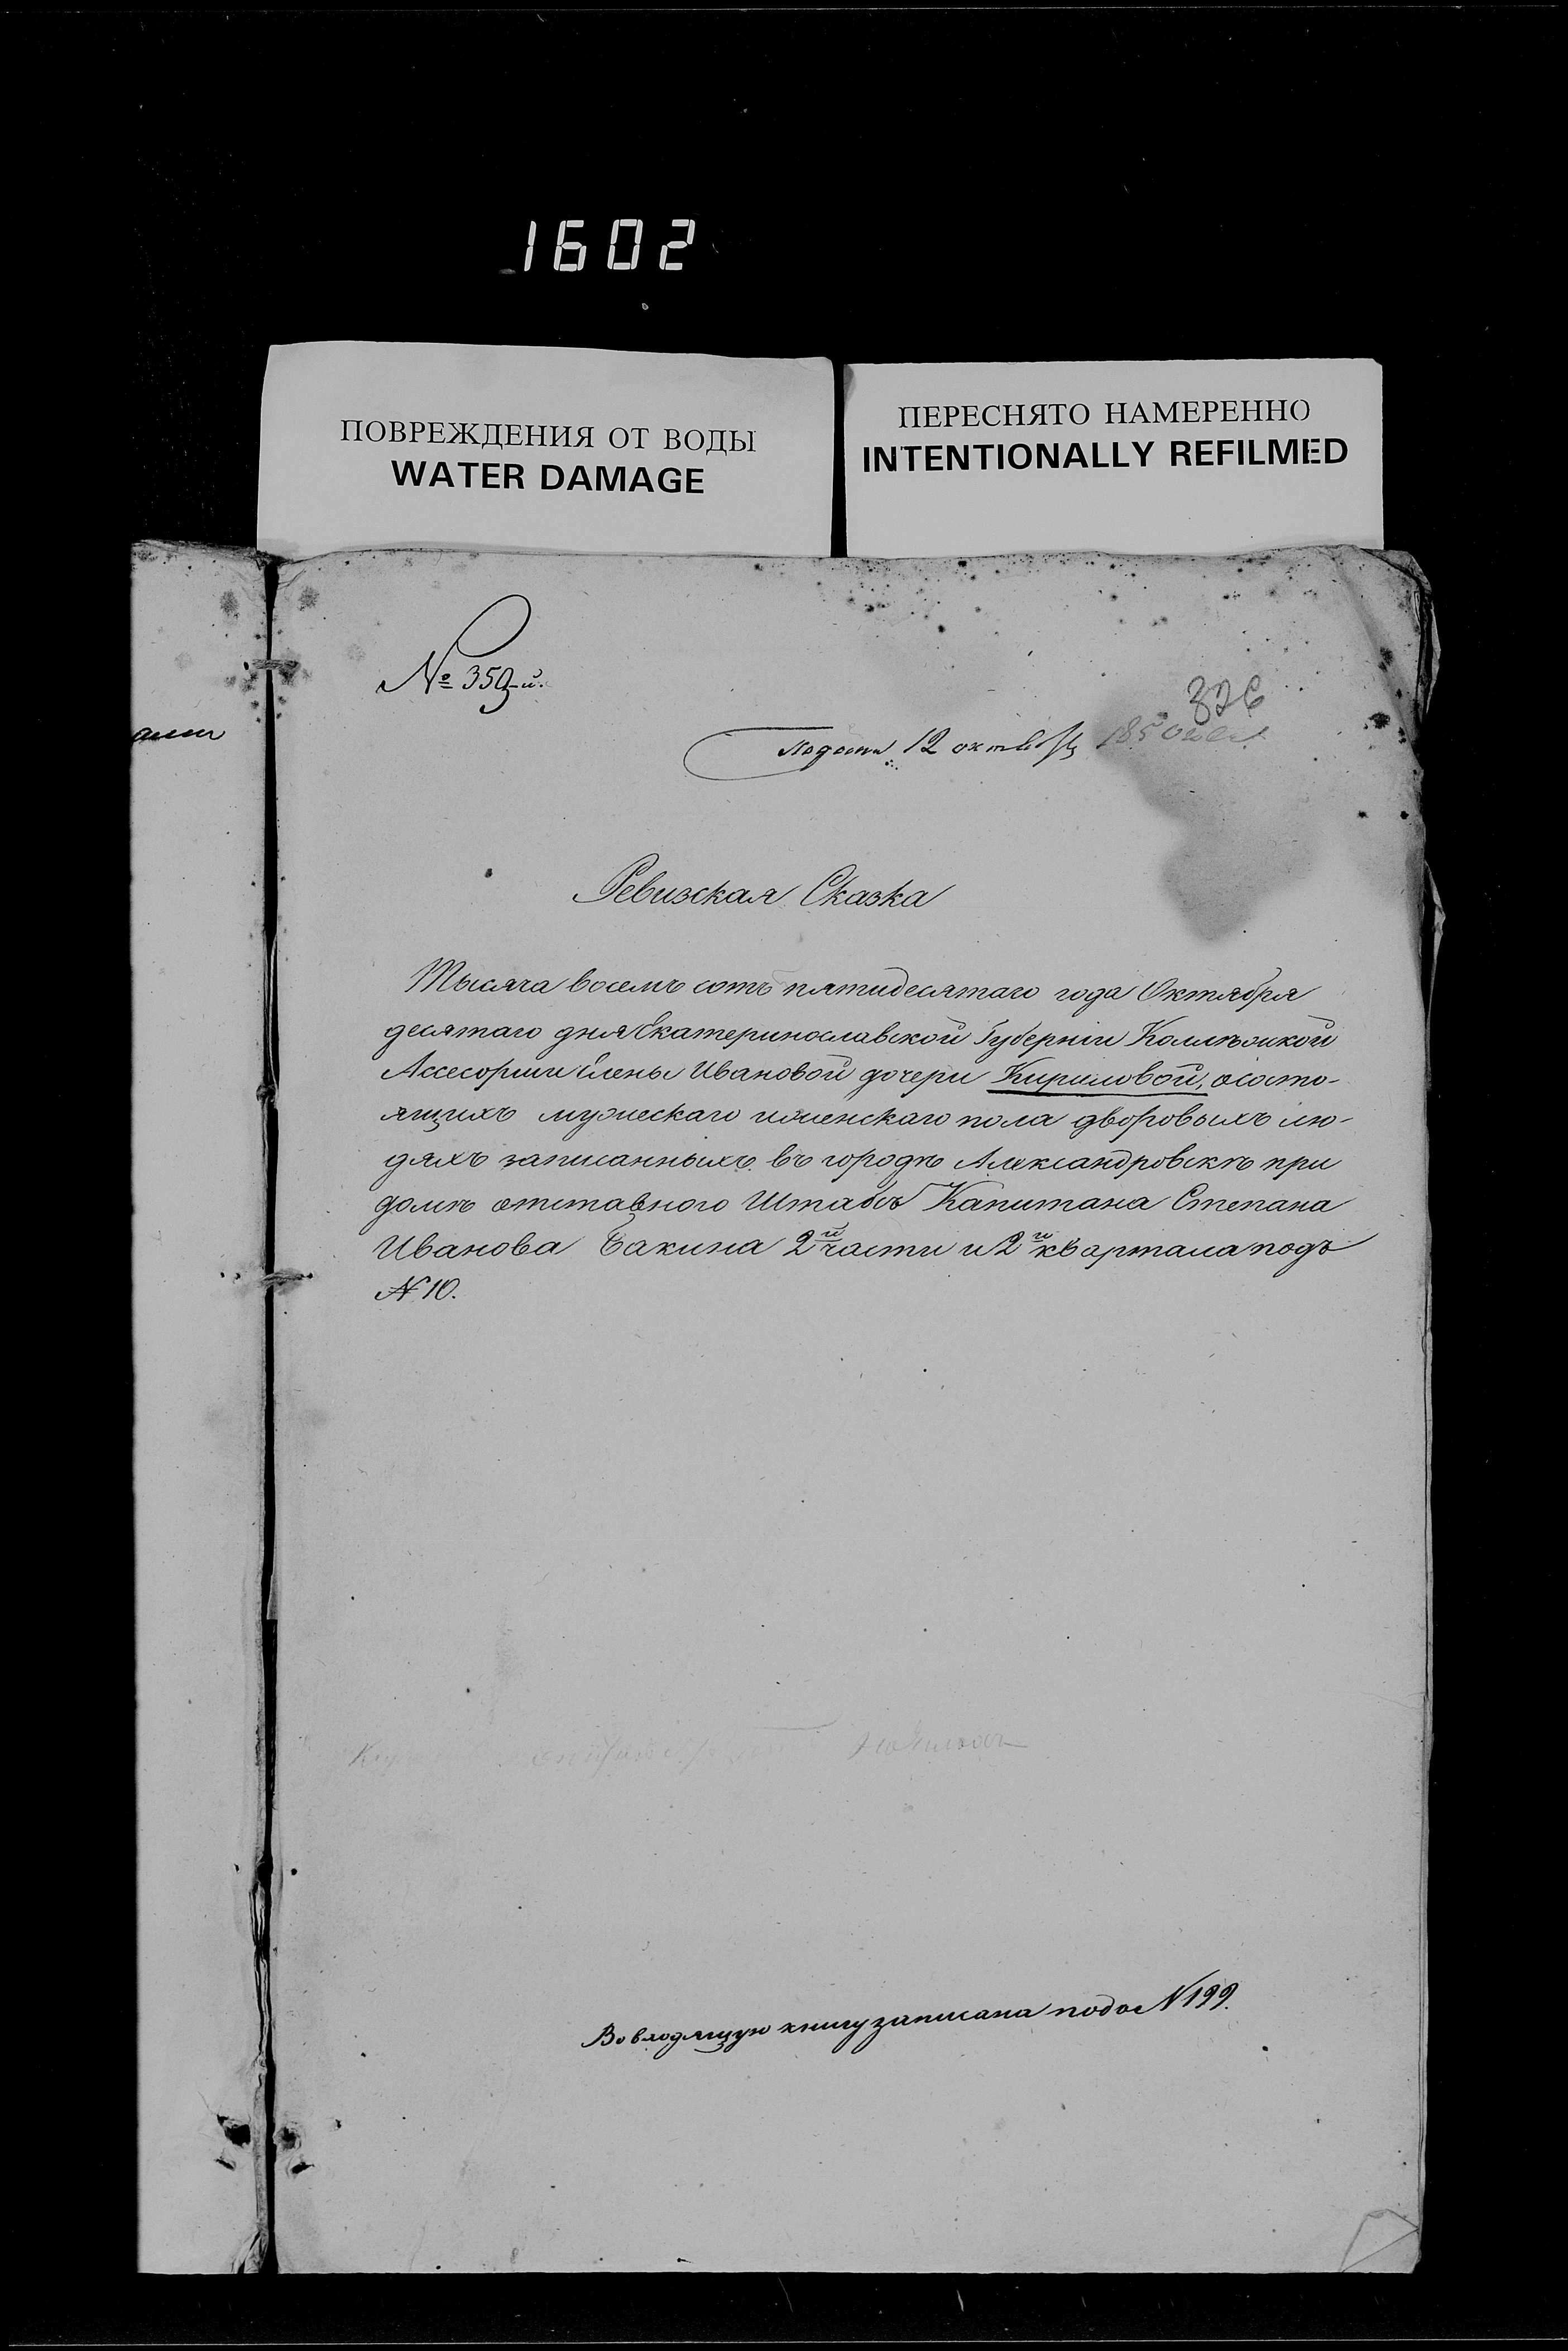 1602
ПОВРЕЖДЕНИЯ ОТ ВОДЫ
WATER DAMAGE
ПЕРЕСНЯТО НАМЕРЕННО
INTENTIONALLY REFILMED
№ 359-й.
326
Подана 12 октября 1850 года
Ревизская Сказка
Тысяча восемь сотъ пятидесятаго года Октября
десятаго дня Екатеринославской Губерніи Коллежской
Ассесорши Елены Ивановой дочери Кириловой, о состо-
ящихъ мужескаго и женскаго пола дворовыхъ лю-
дяхъ записанныхъ въ городѣ Александровскѣ при
домѣ отставного Штабсъ Капитана Степана
Иванова Бакина 2й части и 2й квартала подъ
№ 10.
Во входящую книгу записана подъ № 199.